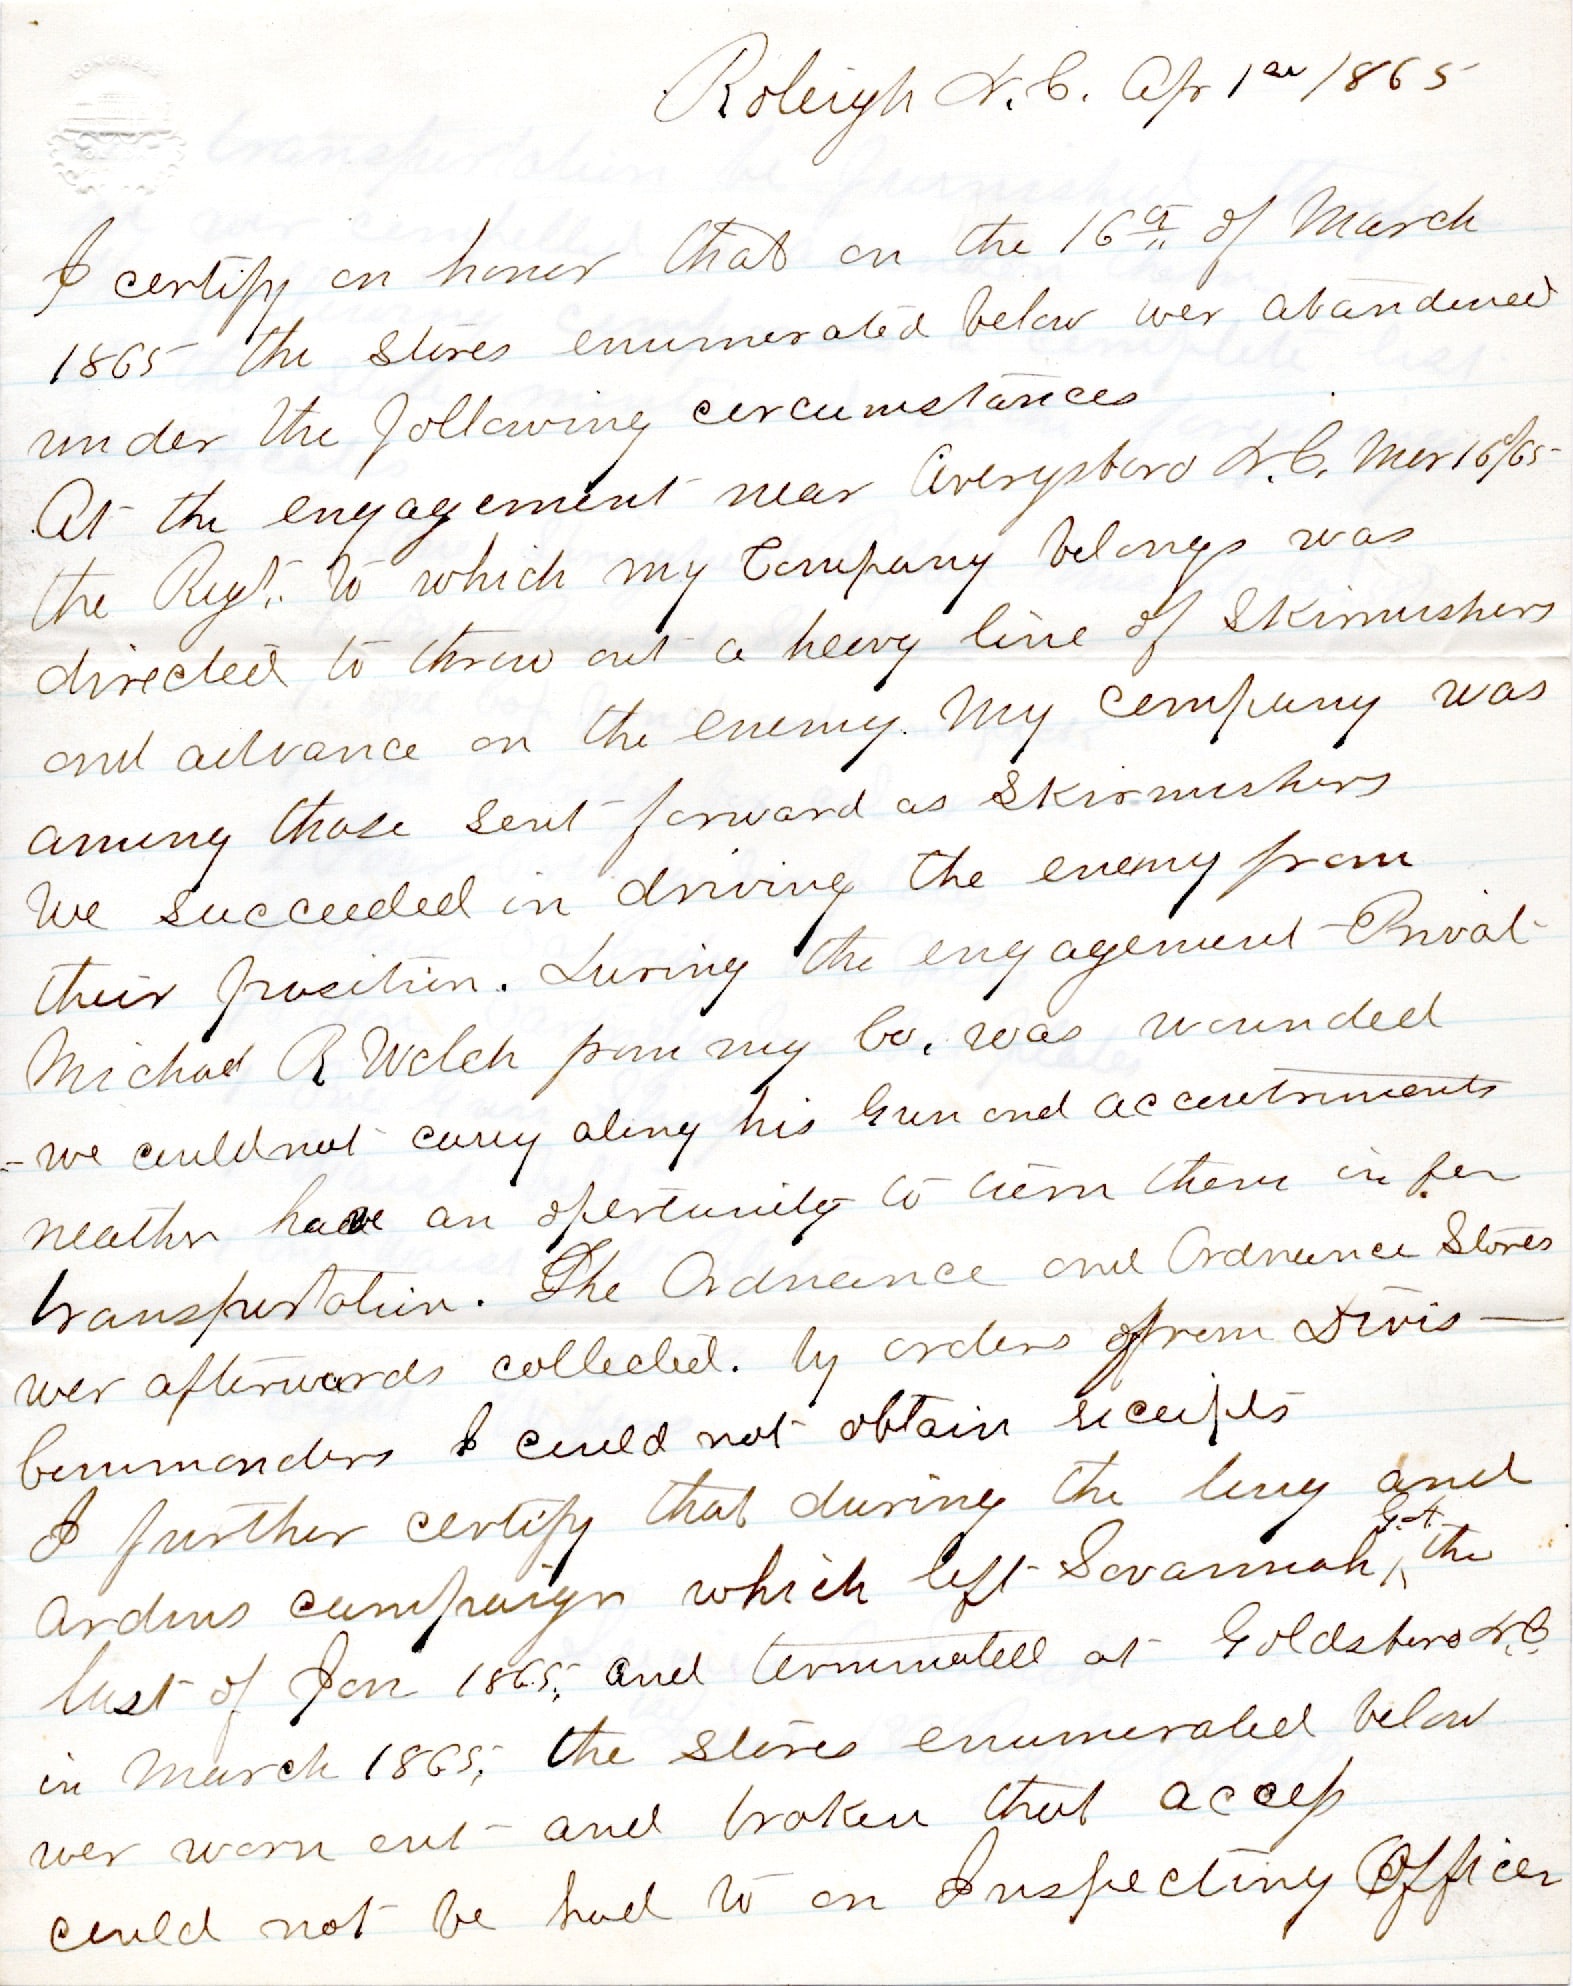 CONGRESS
Roleigh N.C. Apr 1st 1865
I certify on honor that on the 16th of March
1865 the Stores enumerated below wer abandoned
under the following circumstances
At the engagement near Averysboro N.C. Mar 16/65
the Regt. to which my Company belongs was
directed to throw out a heavy line of Skirmishers
and advance on the enemy. My Company was
among those sent forward as Skirmishers
We succeeded in driving the enemy from
their position. During the engagement Privat
Michael R Welch from my Co. was wounded
- we could not carry along his Gun and accoutrments
neather have an opertunity to turn them in for
transportation. The Ordnance and Ordnance Stores
wer afterwards collected. by orders from Divis —
Commanders I could not obtain receipts
I further certify that during the long and
ardius campaign which left Savannah, Ga. the
last of Jan 1865, and terminated at Goldsboro N.C.
in March 1865, the stores enumerated below
wer worn out and broken that accep
could not be had to an Inspecting Officer